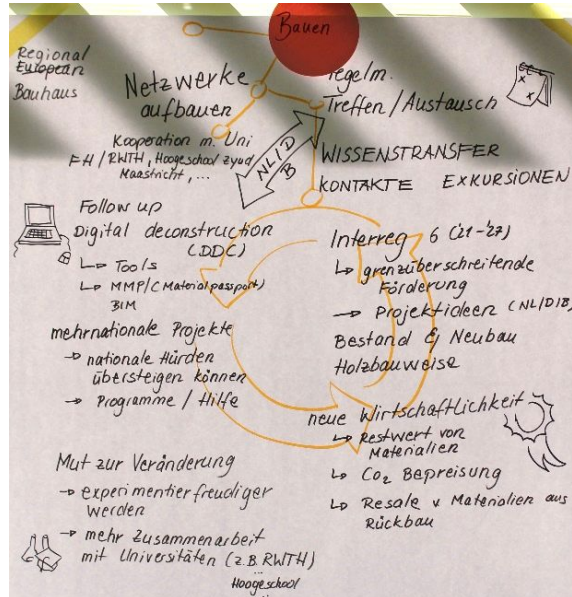 Bauen
Regional
European
Bauhaus
Netzwerke
aufbauen
regelm.
Treffen / Austausch
Kooperation m. Uni
FH / RWTH, Hoogeschool zyud
Maastricht, ...
NL/D
B
WISSENSTRANSFER
KONTAKTE EXKURSIONEN
Follow up
Digital deconstruction
(DDC)
↳ Tools
↳ MMP/C Materialpassport)
BIM
mehrnationale Projekte
→ nationale Hürden
übersteigen können
→ Programme / Hilfe
Interreg 6 ('21-'27)
↳ grenzüberschreitende
Förderung
→ Projektideen (NL/D/B)
Bestand & Neubau
Holzbauweise
neue Wirtschaftlichkeit
↳ Restwert von
Materialien
↳ CO₂ Bepreisung
↳ Resale v Materialien aus
Rückbau
Mut zur Veränderung
→ experimentierfreudiger
werden
→ mehr Zusammenarbeit
mit Universitäten (z.B. RWTH)
Hoogeschool